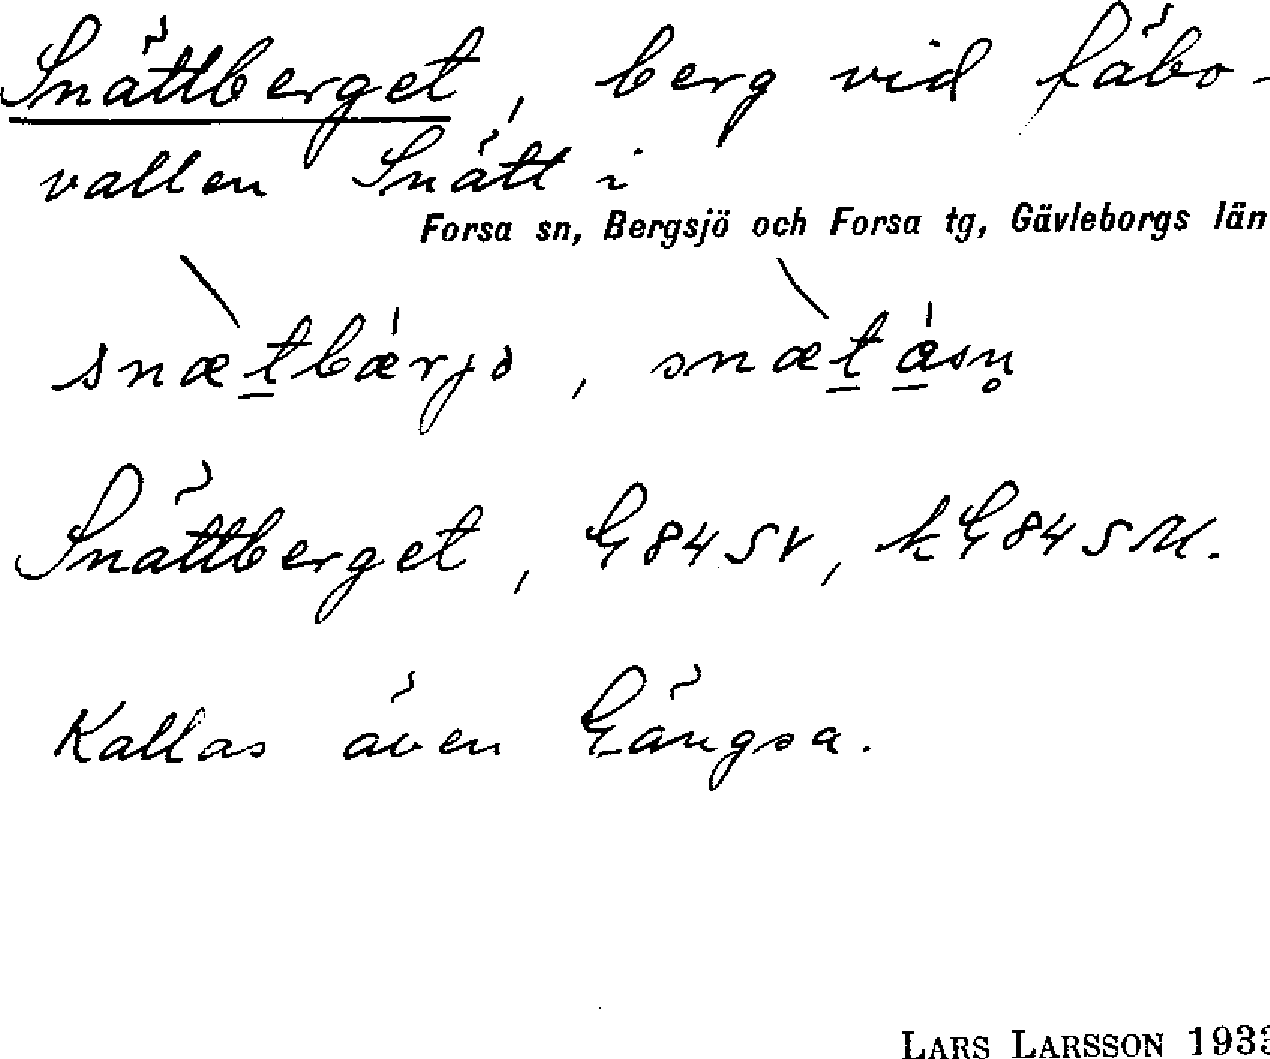 Snättberget, berg vid fäbo-
vallen Snätt i
Forsa sn, Bergsjö och Forsa tg, Gävleborgs län
snæt̲bærjə, snæt̲æ̲sn̥
Snättberget, G84SV, kG84SM.
Kallas även Gängsa.
LARS LARSSON 1933